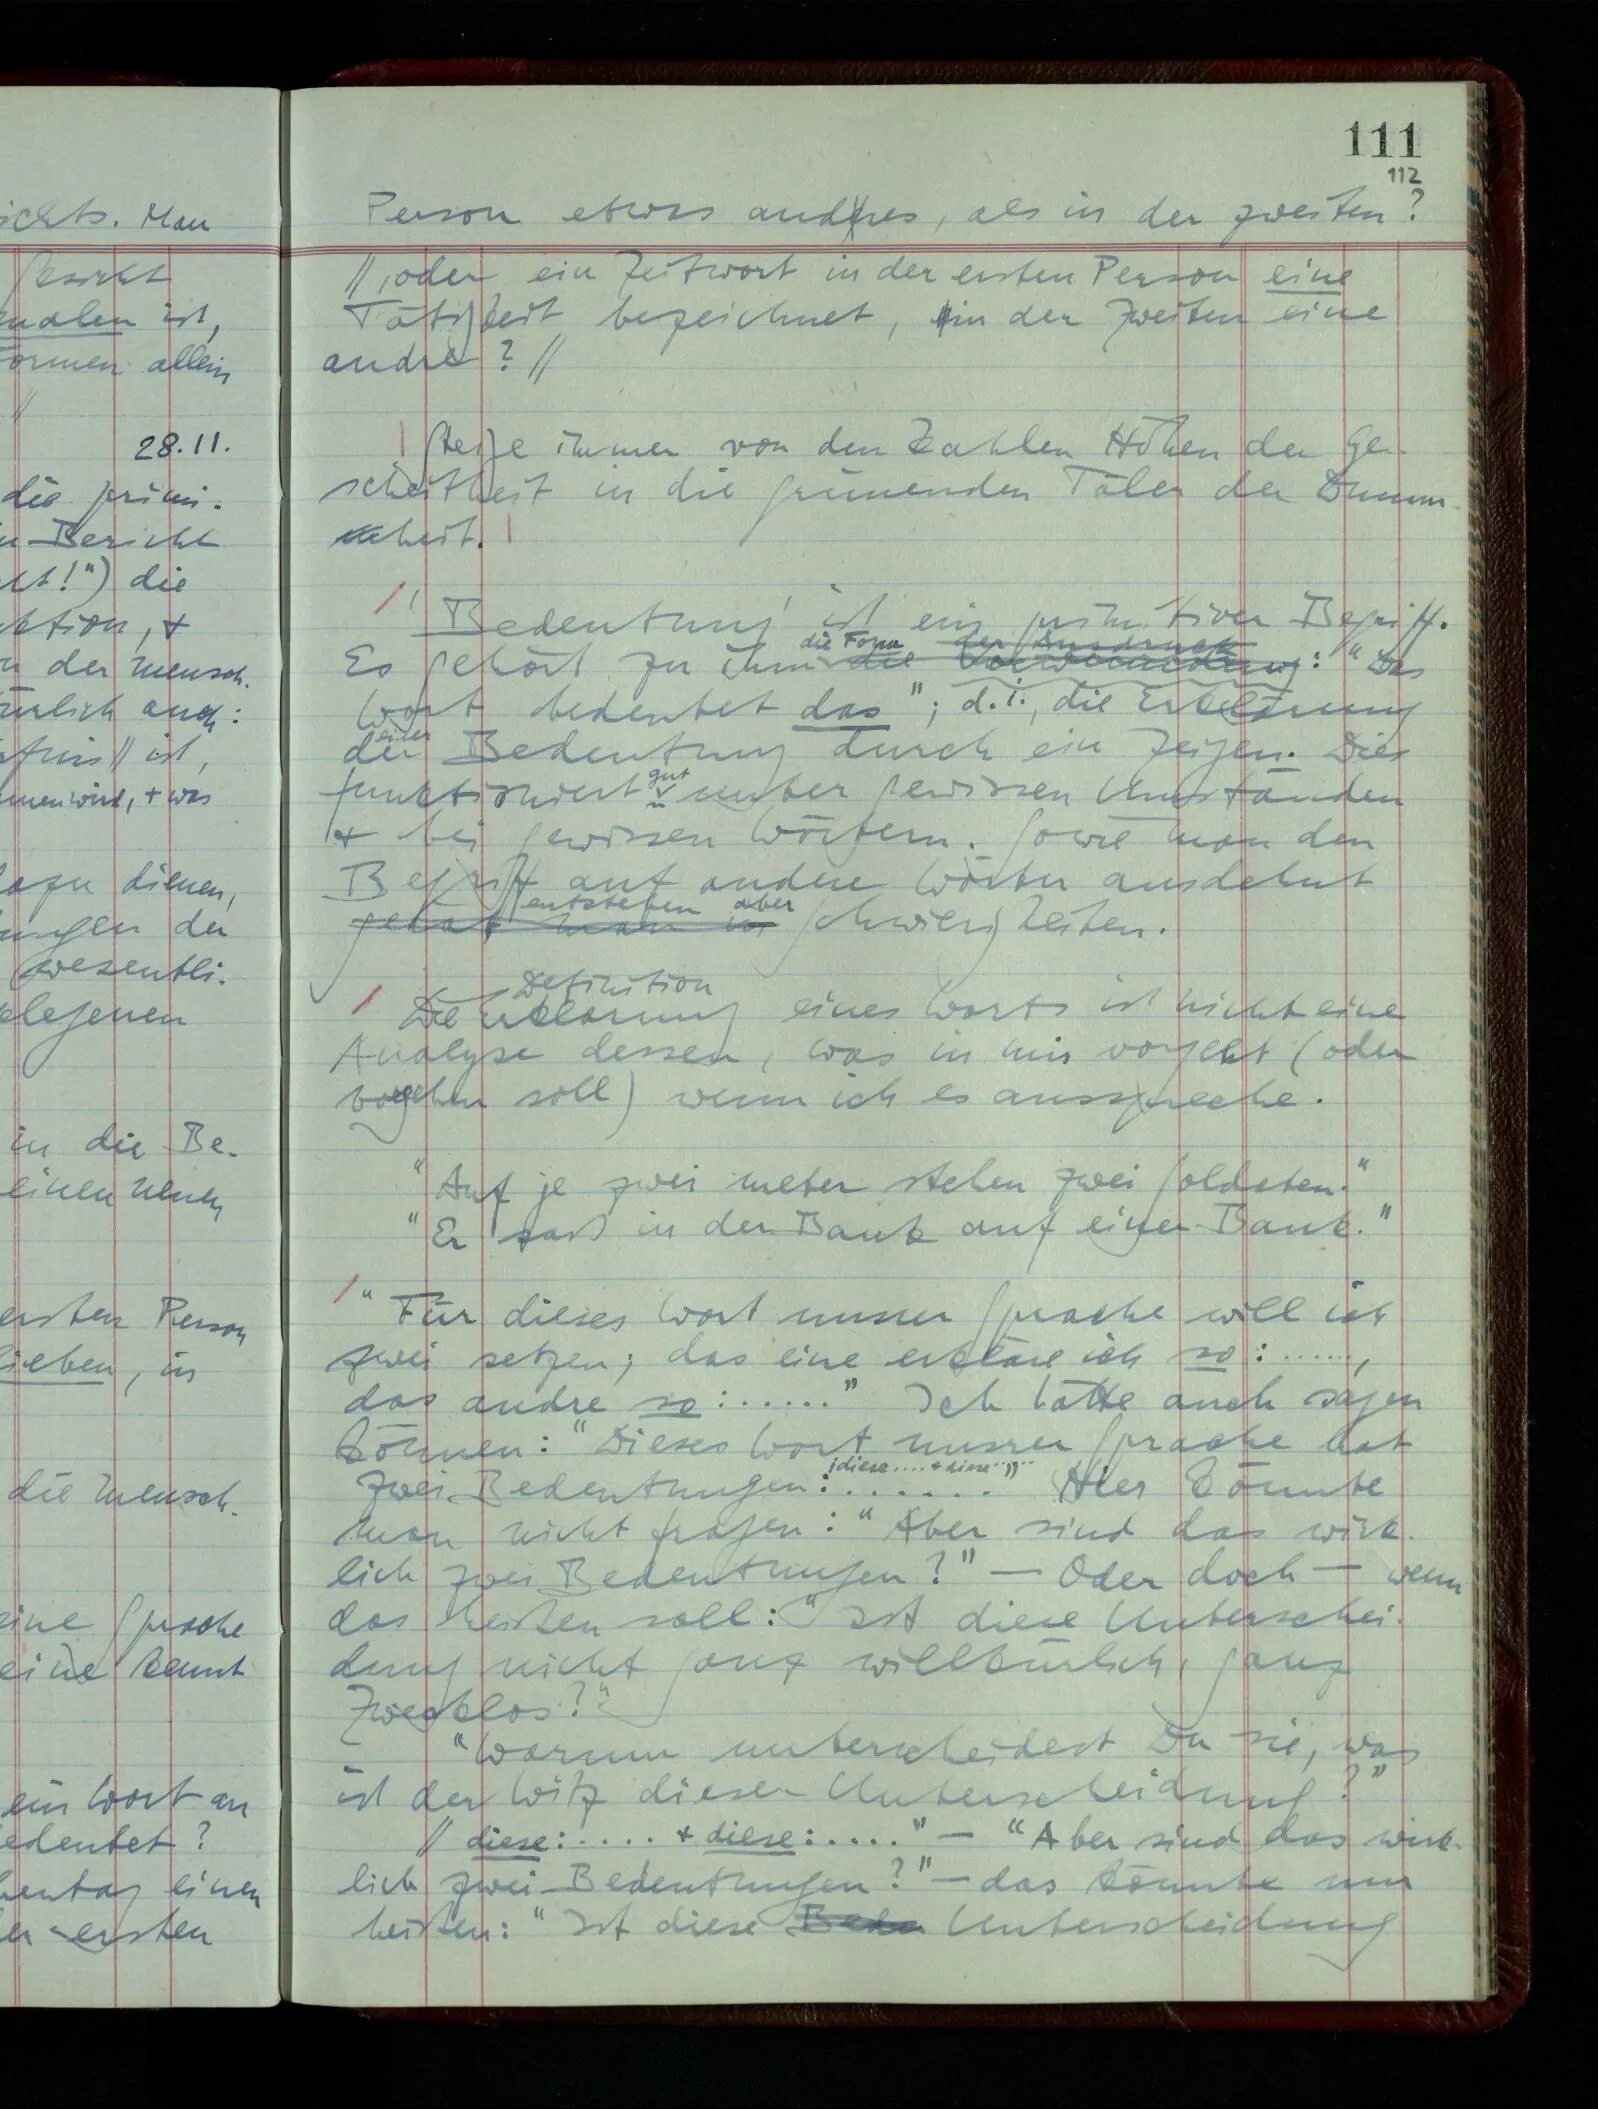 ichts. Man
gesicht
malen ist,
Formen allein
//
28.11.
die primi-
Bericht
cht!") die
ktion, +
der mensch-
ürlich auch:
ist,
men wird, + was
dazu dienen,
ungen der
wesentli-
elegenen
in die Be-
einen neuen
ersten Person
lieben, in
die mensch-
eine Sprache
eine kennt
ein Wort an
edeutet?
einen
er ersten
111
112
Person etwas andres, als in der zweiten?
//, oder ein Zeitwort in der ersten Person eine
Tätigkeit bezeichnet, in der zweiten eine
andre? //
| Steige immer von den kahlen Höhen der Ge-
scheitheit in die grünenden Täler der Dumm-
heit. |
/ 'Bedeutung' ist ein primitiver Begriff.
die Form der Ausdruck
Es gehört zu ihm die : "Das
Wort bedeutet das"; d.i., die Erklärung
einer
der Bedeutung durch ein Zeigen. Dies
gut
funktioniert unter gewissen Umständen
+ bei gewissen Wörtern. Sowie man den
Begriff auf andere Wörter ausdehnt
entstehen aber
gerät man in Schwierigkeiten.
Definition
/ Die Erklärung eines Worts ist nicht eine
Analyse dessen, was in mir vorgeht (oder
vorgehen soll) wenn ich es ausspreche.
"Auf je zwei meter stehen zwei Soldaten."
"Er saß in der Bank auf einer Bank."
/ "Für dieses Wort unsrer Sprache will ich
zwei setzen; das eine erkläre ich so: ......,
das andre so: ......" Ich hätte auch sagen
können: "Dieses Wort unsrer Sprache hat
diese .... + diese ...."
zwei Bedeutungen: ....... Hier könnte
man nicht fragen: "Aber sind das wirk-
lich zwei Bedeutungen?" — Oder doch — wenn
das heißen soll: "Ist diese Unterschei-
dung nicht ganz willkürlich, ganz
Zwecklos?"
"Warum unterscheidest Du sie, was
ist der Witz dieser Unterscheidung?"
// diese: .... + diese: ...." — "Aber sind das wirk-
lich zwei Bedeutungen?" — das könnte nur
heißen: "Ist diese Bede Unterscheidung